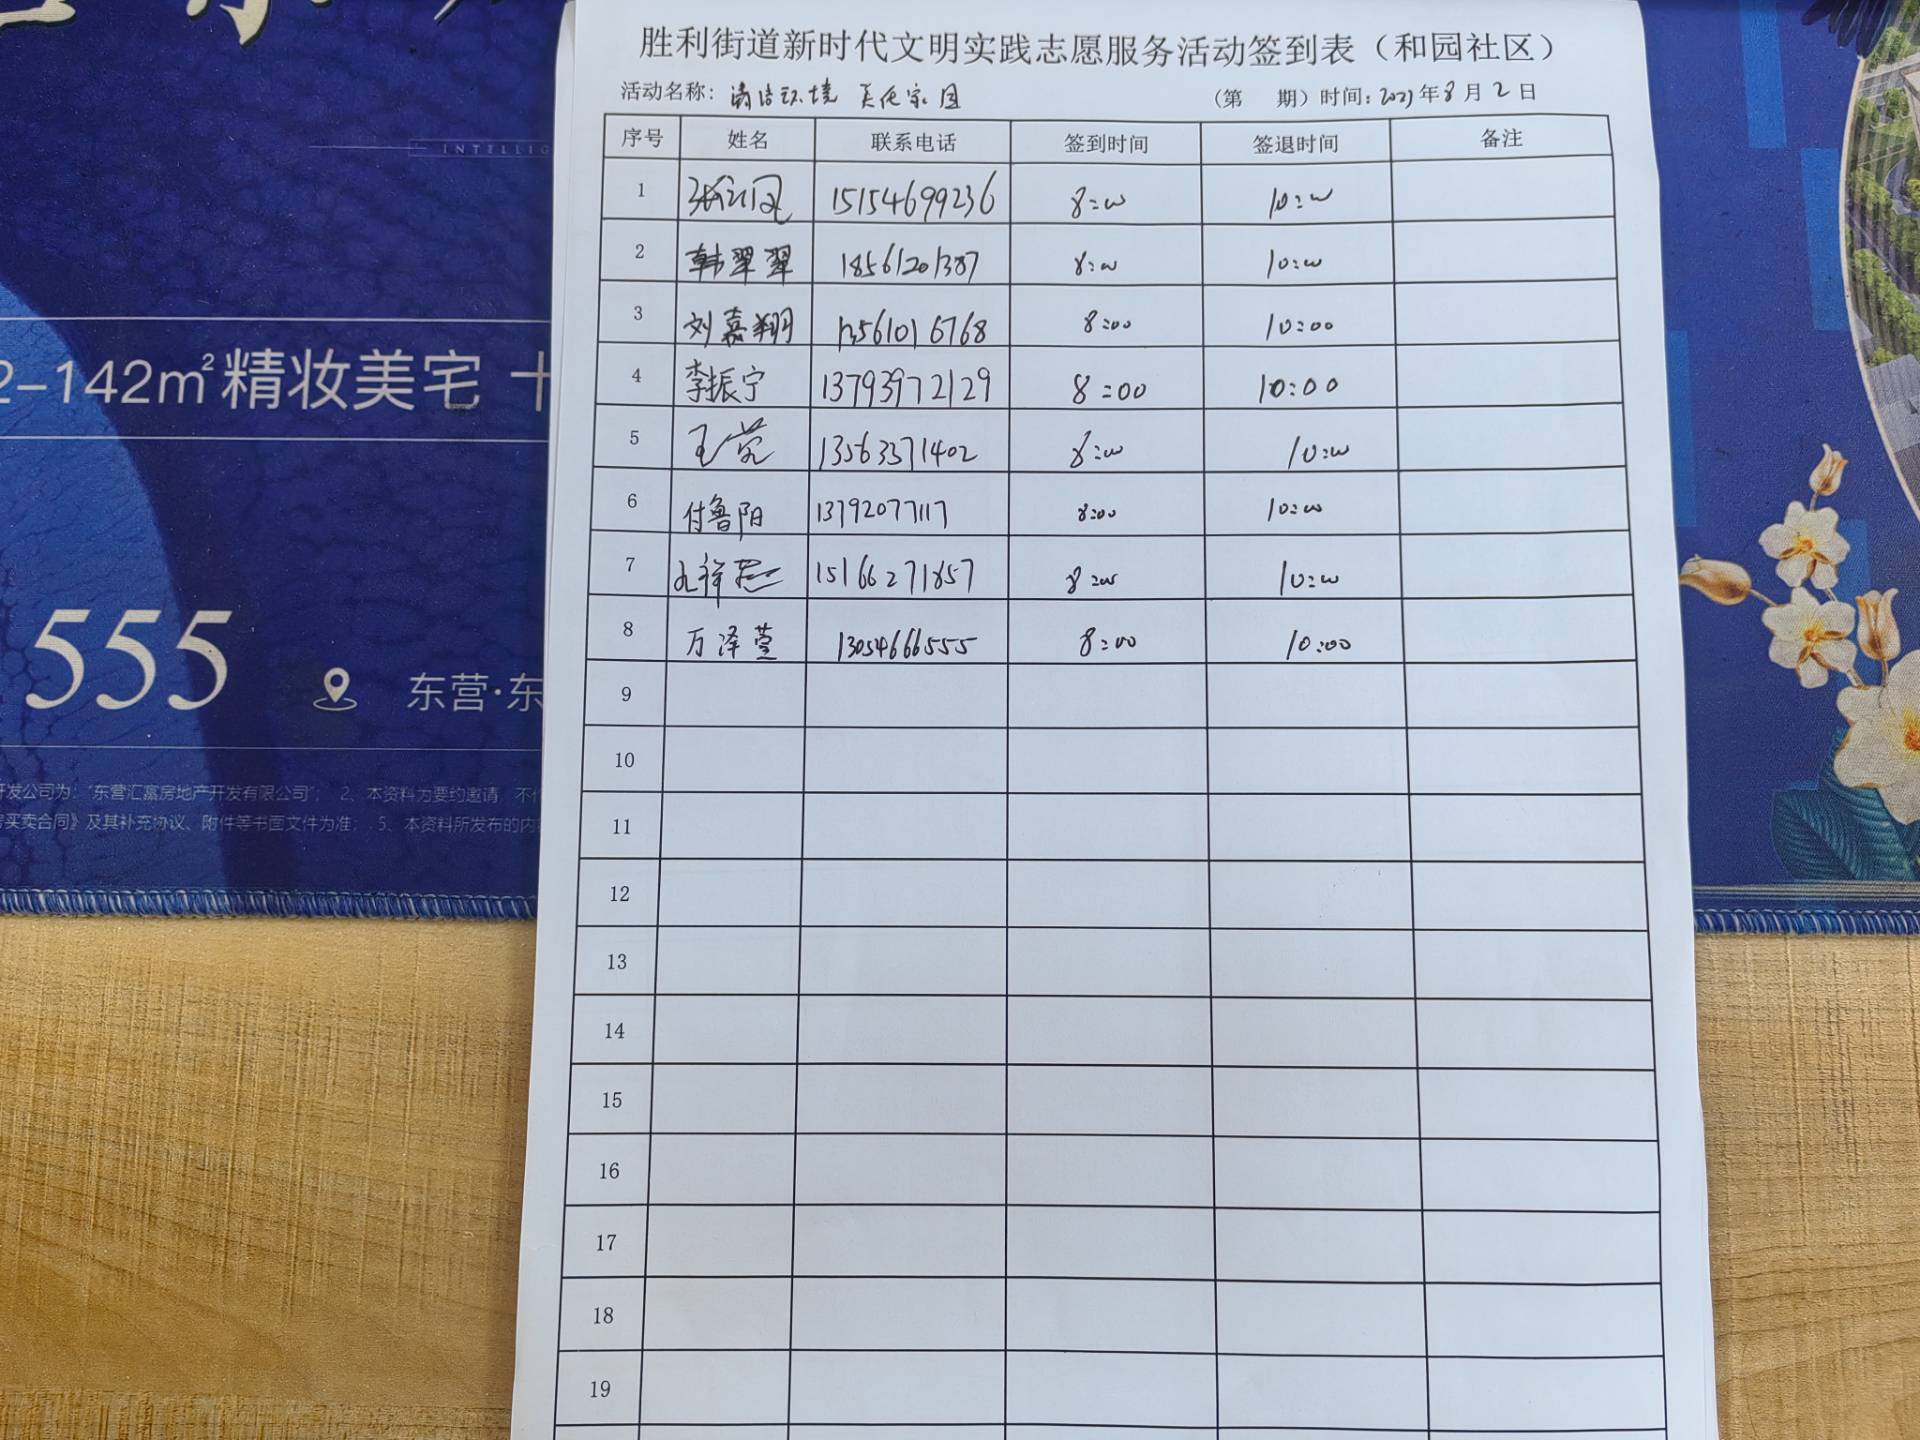 胜利街道新时代文明实践志愿服务活动签到表（和园社区）
活动名称：清洁环境 美化家园 （第 期）时间：2023年8月2日
序号 姓名 联系电话 签到时间 签退时间 备注
1 15154699236 8:00 10:00
2 韩翠翠 18561201387 8:00 10:00
3 刘嘉翔 13561016768 8:00 10:00
4 李振宁 13793972129 8:00 10:00
5 王莹 13563371402 8:00 10:00
6 付鲁阳 13792077117 8:00 10:00
7 15166271857 8:00 10:00
8 万泽萱 13054666555 8:00 10:00
9
10
11
12
13
14
15
16
17
18
19
INTELLIG
2-142m²精妆美宅 十
555
东营·东
开发公司为："东营汇富房地产开发有限公司"； 2、本资料为要约邀请，不作
房买卖合同》及其补充协议、附件等书面文件为准； 5、本资料所发布的内容